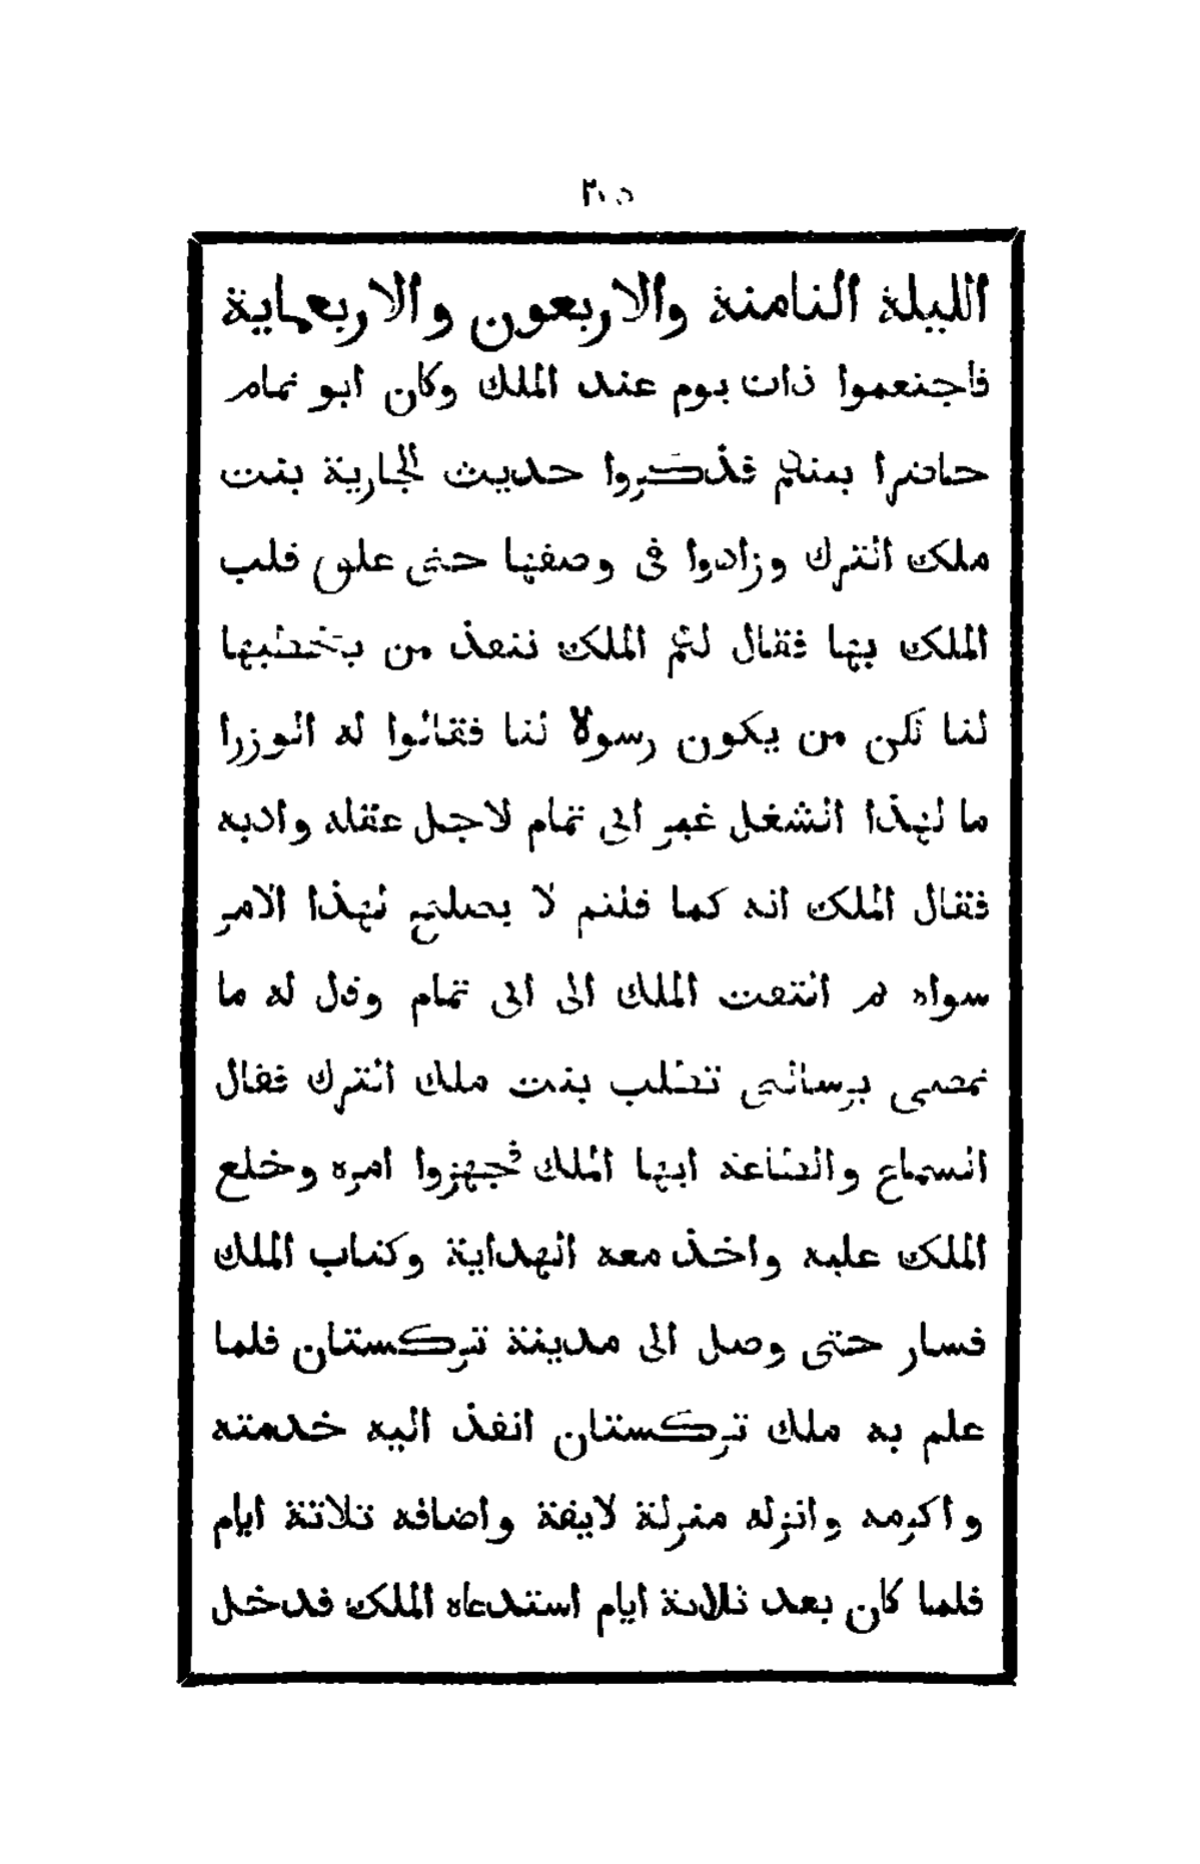 ٢٠٥
الليلة الثامنة والاربعون والاربعماية
فاجتمعوا ذات يوم عند الملك وكان ابو تمام
حاضرا بينهم فذكروا حديث الجارية بنت
ملك الترك وزادوا فى وصفها حتى علق قلب
الملك بها فقال لهم الملك ننفذ من يخطبها
لنا لكن من يكون رسولا لنا فقالوا له الوزرا
ما لهذا الشغل غير ابى تمام لاجل عقله وادبه
فقال الملك انه كما قلتم لا يصلح لهذا الامر
سواه ثم التفت الملك الى ابى تمام وقال له ما
تمضى برسالتى تطلب بنت ملك الترك فقال
السماع والطاعة ايها الملك فجهزوا امره وخلع
الملك عليه واخذ معه الهداية وكتاب الملك
فسار حتى وصل الى مدينة تركستان فلما
علم به ملك تركستان انفذ اليه خدمته
واكرمه وانزله منزلة لايقة واضافه ثلاثة ايام
فلما كان بعد ثلاثة ايام استدعاه الملك فدخل